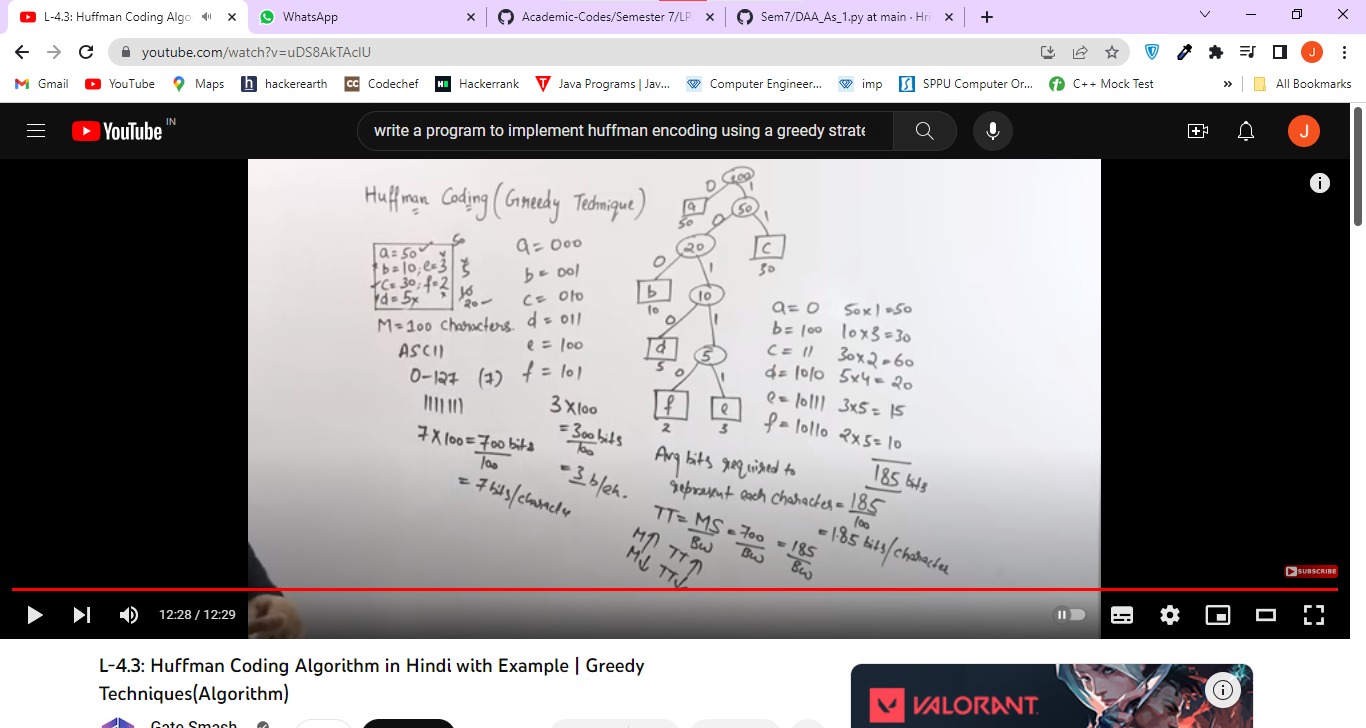 L-4.3: Huffman Coding Algo
WhatsApp
Academic-Codes/Semester 7/LP
Sem7/DAA_As_1.py at main · Hri
youtube.com/watch?v=uDS8AkTAclU
J
Gmail
YouTube
Maps
h hackerearth
CC Codechef
Hackerrank
Java Programs | Jav...
Computer Engineer...
imp
SPPU Computer Or...
C++ Mock Test
»
All Bookmarks
YouTube IN
write a program to implement huffman encoding using a greedy strate
J
Huffman Coding (Greedy Technique)
a=50
b=10, e=3
c=30, f=2
d=5
M=100 characters.
ASCII
0-127 (7)
1111111
7×100=700 bits
100
= 7 bits/characte
a=000
b=001
c=010
d=011
e=100
f=101
3×100
=300 bits
100
=3 b/ch.
100
0 1
a
50
50
0 1
20
c
30
0 1
b
10
10
0 1
d
5
5
0 1
f
2
e
3
a=0 50×1=50
b=100 10×3=30
c=11 30×2=60
d=1010 5×4=20
e=10111 3×5=15
f=10110 2×5=10
185 bits
Avg bits required to
represent each character=185
100
=1.85 bits/character
TT=MS=700=185
BW BW BW
M↑ TT↑
M↓ TT↓
SUBSCRIBE
12:28 / 12:29
L-4.3: Huffman Coding Algorithm in Hindi with Example | Greedy
Techniques(Algorithm)
Gate Smash
VALORANT